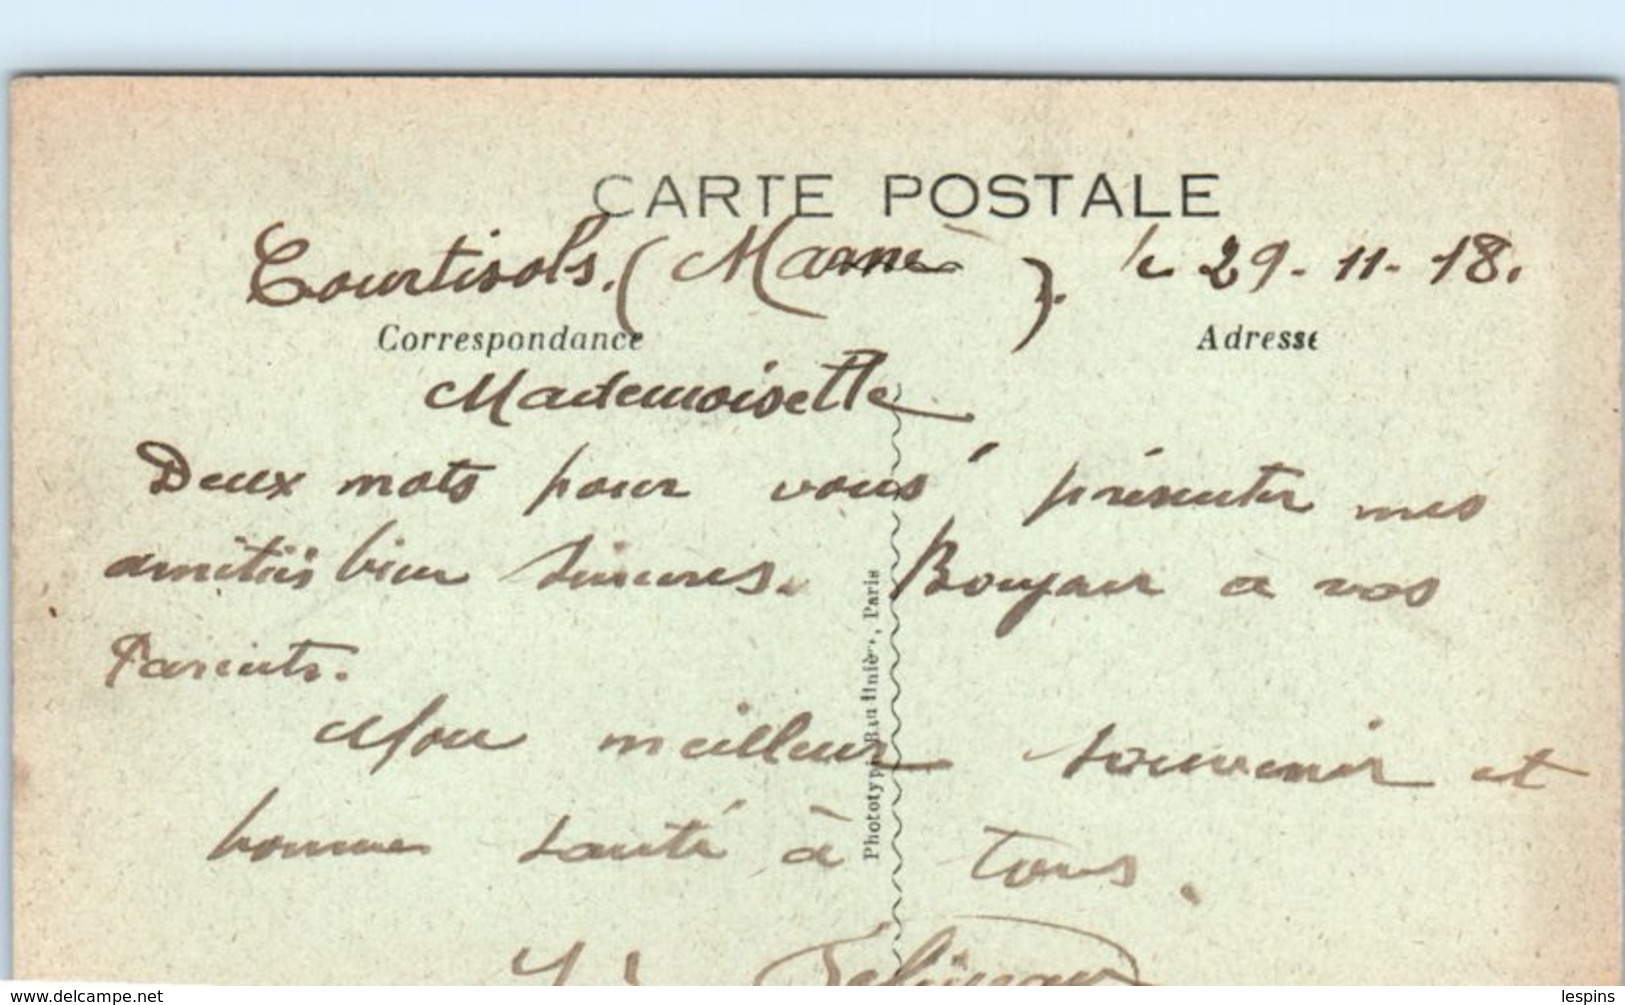 CARTE POSTALE
Courtisols. (Marne). le 29-11-18.
Correspondance
Adresse
Mademoiselle
Deux mots pour vous présenter mes
amitiés bien sincères. Bonjour a vos
Parents.
Mon meilleur souvenir et
bonne santé à tous.
Paris
www.delcampe.net
lespins